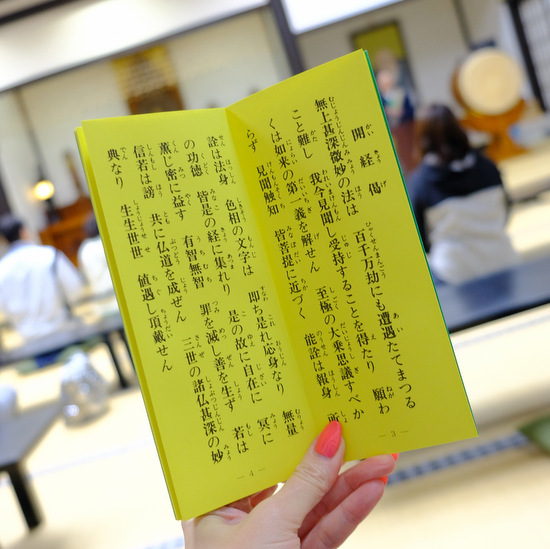 開経偈
無上甚深微妙の法は 百千万劫にも遭遇たてまつる
こと難し 我今見聞し受持することを得たり 願わ
くは如来の第一義を解せん 至極の大乗思議すべか
らず 見聞触知 皆菩提に近づく 能詮は報身 所
— 3 —
詮は法身 色相の文字は 即ち是れ応身なり 無量
の功徳 皆是の経に集れり 是の故に自在に 冥に
薫じ密に益す 有智無智 罪を滅し善を生ず 若は
信若は謗 共に仏道を成ぜん 三世の諸仏甚深の妙
典なり 生生世世 値遇し頂戴せん
— 4 —